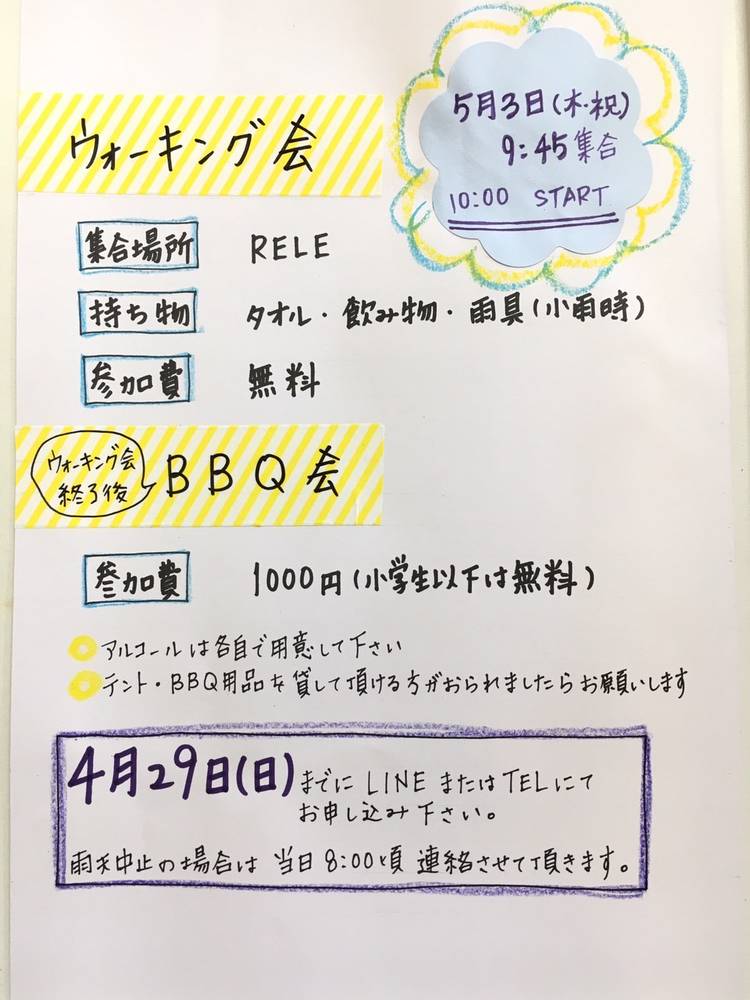 5月3日(木・祝)
9:45集合
10:00 START
ウォーキング会
集合場所 RELE
持ち物 タオル・飲み物・雨具(小雨時)
参加費 無料
ウォーキング会
終了後
BBQ会
参加費 1000円(小学生以下は無料)
アルコールは各自で用意して下さい
テント・BBQ用品を貸して頂ける方がおられましたらお願いします
4月29日(日)までにLINEまたはTELにて
お申し込み下さい。
雨天中止の場合は当日8:00頃連絡させて頂きます。